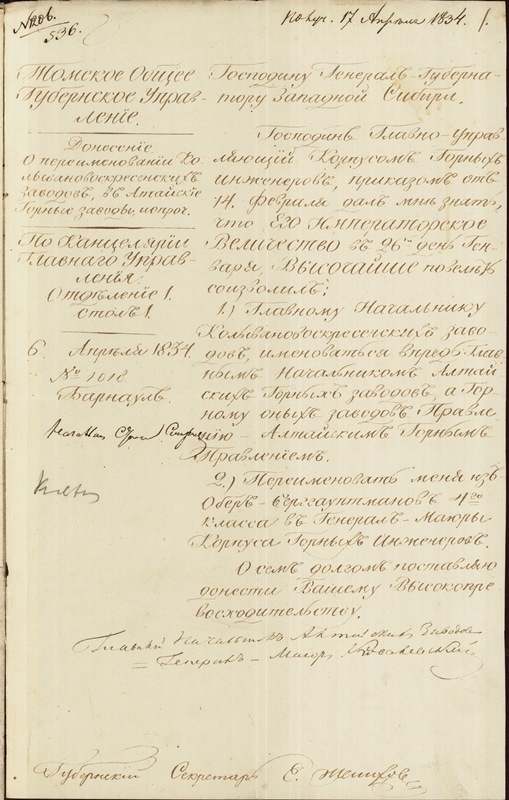 536.
Получ. 17 Апреля 1834. 1.
Томское Общее
Губернское Управ-
ленiе.
Донесенiе
О переименованiи Ко-
лывановоскресенскихъ
заводовъ, въ Алтайскiе
Горные заводы, и проч.
По Канцелярiи
Главнаго Управ-
ленiя.
Отдѣленiе 1.
Столъ 1.
6. Апрѣля 1834.
№ 1618
Барнаулъ.
Господину Генералъ-Губерна-
тору Западной Сибири.
Господинъ Главно-Управ
ляющiй Корпусомъ Горныхъ
Инженеровъ, приказомъ отъ
14. февраля далъ мнѣ знать,
что Его Императорское
Величество въ 26й день Ген-
варя, Высочайше повелѣть
соизволилъ:
1.) Главному Начальнику
Колывановоскресенскихъ заво-
довъ, именоваться впредь Глав-
нымъ Начальникомъ Алтай
скихъ Горныхъ заводовъ, а Гор-
ному оныхъ заводовъ Правле-
нiю – Алтайскимъ Горнымъ
Правленiемъ.
2.) Переименовать меня изъ
Оберъ-бергауптмановъ 4го
класса въ Генералъ-Маiоры
Корпуса Горныхъ Инженеровъ.
О семъ долгомъ поставляю
донести Вашему Высокопре-
восходительству.
Главный Начальникъ Алтайскихъ Заводовъ
= Генералъ-Маiоръ Ковалевскiй
Губернскiй Секретарь Е.